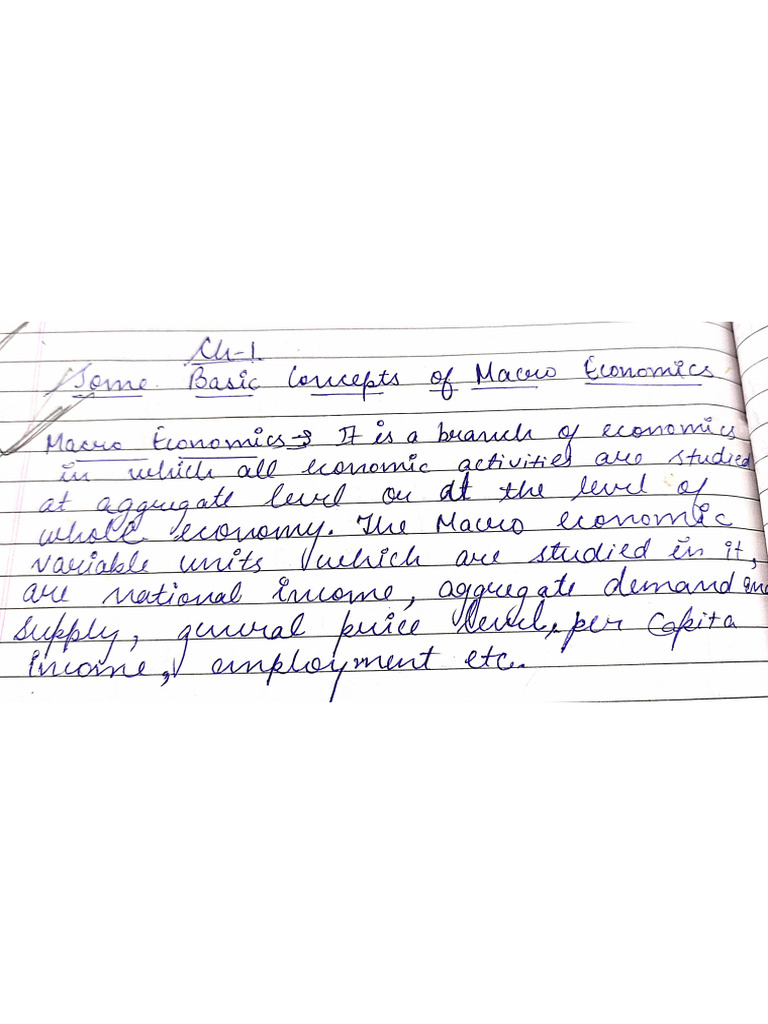 Ch-1
Some Basic Concepts of Macro Economics
Macro Economics → It is a branch of economics
in which all economic activities are studied
at aggregate level or at the level of
whole economy. The Macro economic
variable units which are studied in it,
are national income, aggregate demand and
supply, general price level, per Capita
income, employment etc.